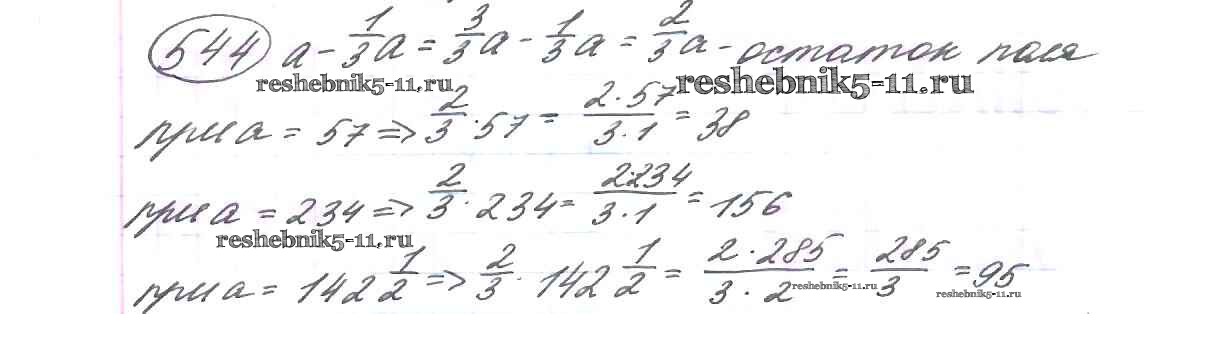 544 a - 1/3 a = 3/3 a - 1/3 a = 2/3 a - остаток поля
reshebnik5-11.ru reshebnik5-11.ru
при a = 57 => 2/3 · 57 = 2 · 57 / 3 · 1 = 38
при a = 234 => 2/3 · 234 = 2·234 / 3 · 1 = 156
reshebnik5-11.ru
при a = 142 1/2 => 2/3 · 142 1/2 = 2 · 285 / 3 · 2 = 285/3 = 95
reshebnik5-11.ru reshebnik5-11.ru